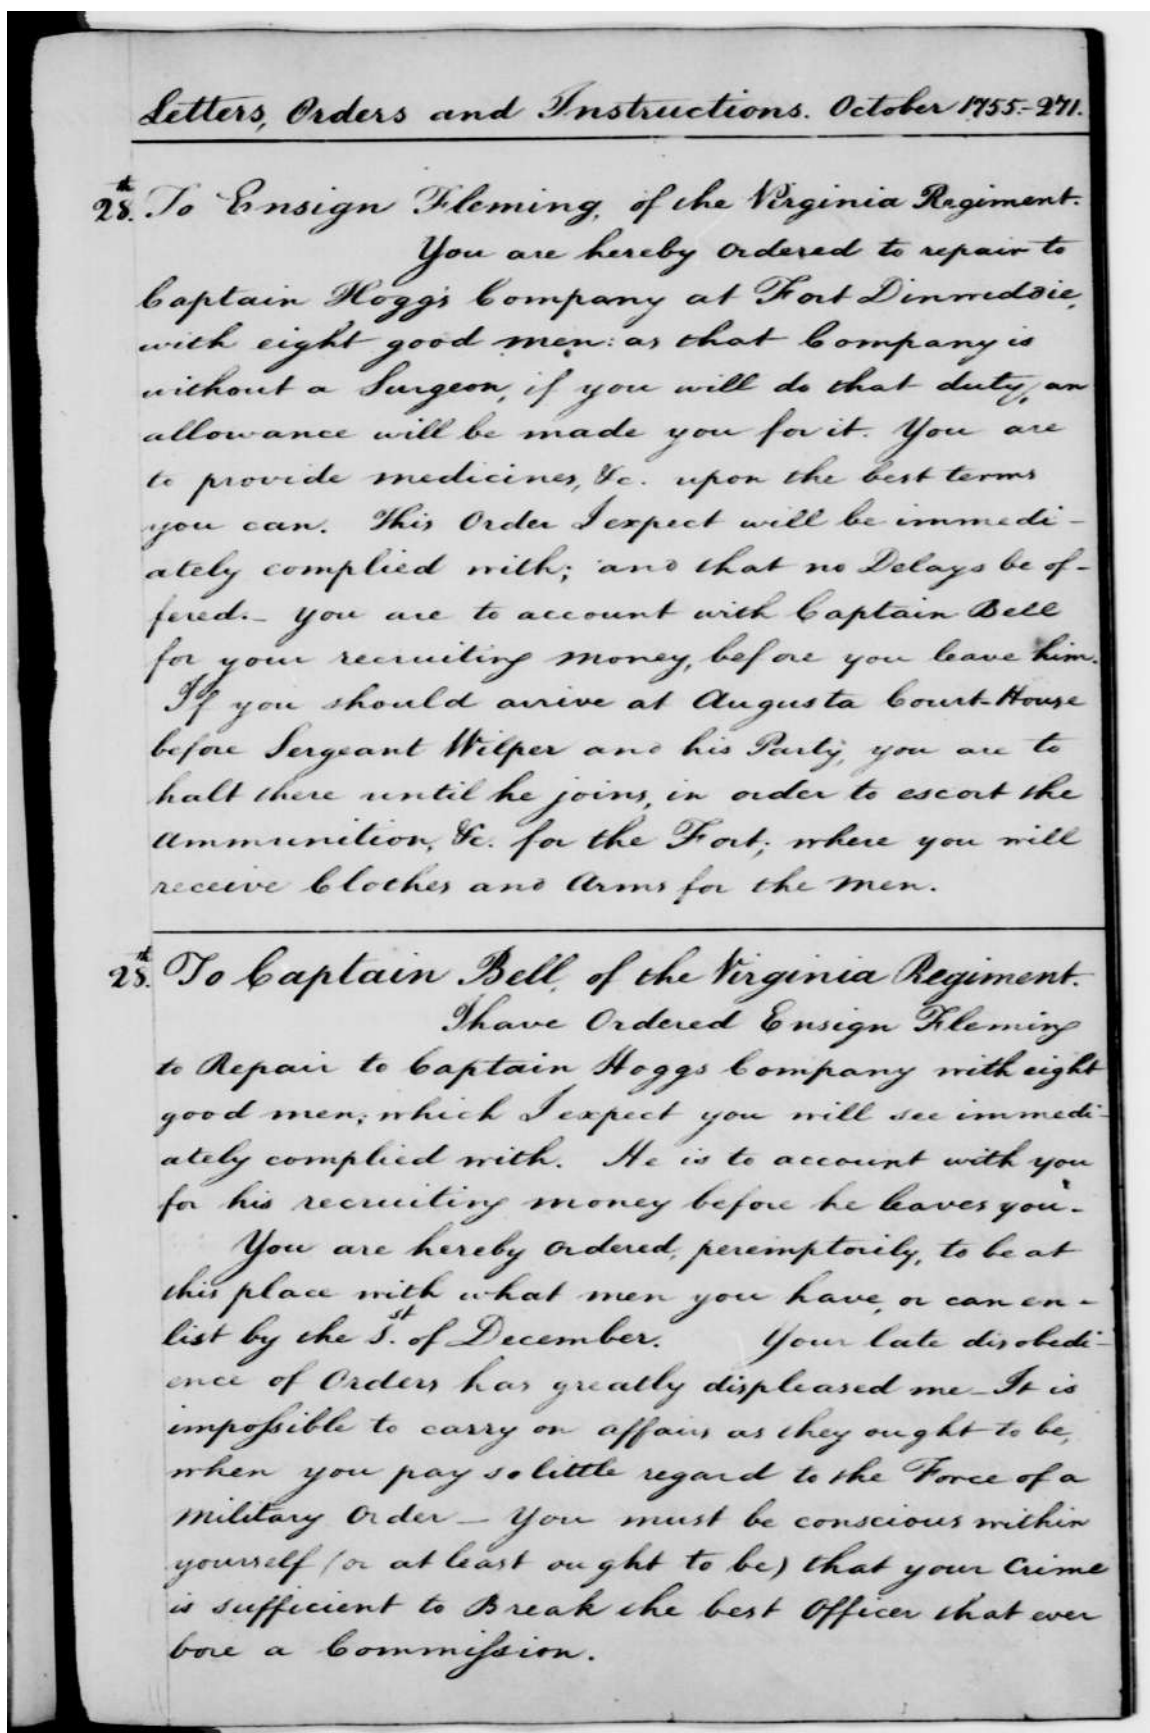 Letters, Orders and Instructions. October 1755.-271.
28.th To Ensign Fleming, of the Virginia Regiment.
You are hereby ordered to repair to
Captain Hogg's Company at Fort Dinwiddie,
with eight good men: as that Company is
without a Surgeon, if you will do that duty, an
allowance will be made you for it. You are
to provide medicines, &c. upon the best terms
you can. This Order I expect will be immedi-
ately complied with; and that no Delays be of-
fered. - you are to account with Captain Bell
for your recruiting money, before you leave him.
If you should arrive at Augusta Court-House
before Sergeant Wilper and his Party, you are to
halt there until he joins, in order to escort the
Ammunition, &c. for the Fort; where you will
receive Clothes and Arms for the men.
28.th To Captain Bell, of the Virginia Regiment.
I have Ordered Ensign Fleming
to Repair to Captain Hoggs Company with eight
good men; which I expect you will see immedi-
ately complied with. He is to account with you
for his recruiting money before he leaves you.
You are hereby ordered, peremptorily, to be at
this place with what men you have, or can en-
list by the 1.st of December. Your late disobedi-
ence of Orders has greatly displeased me - It is
impossible to carry on affairs as they ought to be,
when you pay so little regard to the Force of a
Military Order - You must be conscious within
yourself (or at least ought to be) that your Crime
is sufficient to Break the best Officer that ever
bore a Commission.